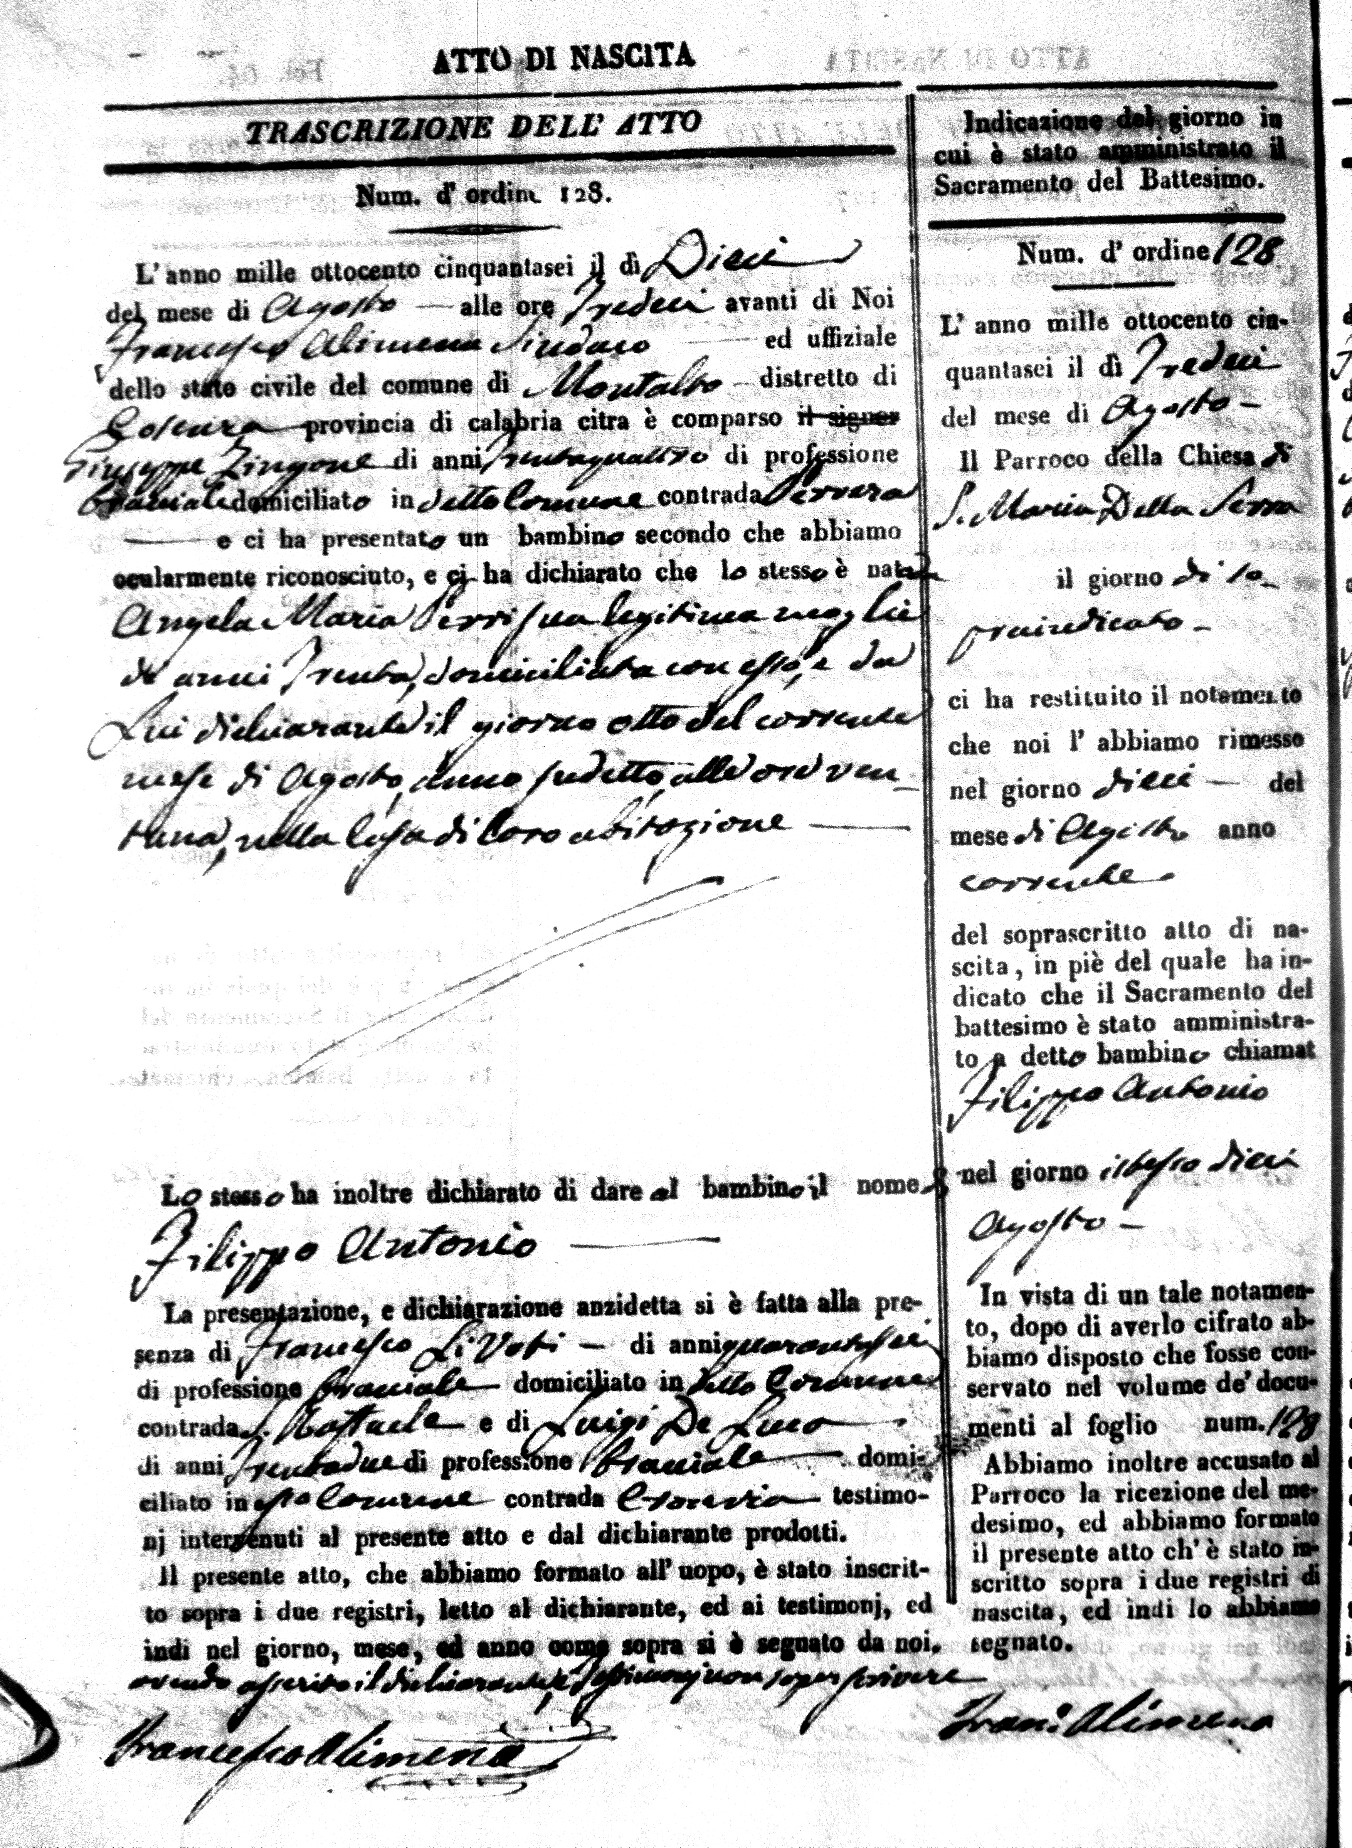 ATTO DI NASCITA
TRASCRIZIONE DELL' ATTO
Num. d' ordine 128.
L' anno mille ottocento cinquantasei il dì Dieci
del mese di Agosto — alle ore Tredeci avanti di Noi
Francesco Alimena Sindaco — ed uffiziale
dello stato civile del comune di Montalto — distretto di
Cosenza provincia di calabria citra è comparso il signor
Giuseppe Zingone di anni trentaquattro di professione
bracciale domiciliato in detto Comune contrada Perrera
— e ci ha presentato un bambino secondo che abbiamo
ocularmente riconosciuto, e ci ha dichiarato che lo stesso è nato da
Angela Maria Perri sua legittima moglie
di anni Trenta, domiciliata con esso, e da
Lui dichiarante il giorno otto del corrente
mese di Agosto, anno sudetto, alle ore ven
tuna, nella Casa di loro abitazione —
Lo stesso ha inoltre dichiarato di dare al bambino il nome di
Filippo Antonio —
La presentazione, e dichiarazione anzidetta si è fatta alla pre-
senza di Francesco Li Voti — di anni quarantasei
di professione bracciale domiciliato in detto Comune
contrada S. Raffaele e di Luigi De Luca
di anni Trentadue di professione bracciale domi-
ciliato in esso Comune contrada testimo-
nj intervenuti al presente atto e dal dichiarante prodotti.
Il presente atto, che abbiamo formato all' uopo, è stato inscrit-
to sopra i due registri, letto al dichiarante, ed ai testimonj, ed
indi nel giorno, mese, ed anno come sopra si è segnato da noi.
avendo asserito il dichiarante, e Testimonj non saper scrivere
Francesco Alimena
Indicazione del giorno in
cui è stato amministrato il
Sacramento del Battesimo.
Num. d' ordine 128
L' anno mille ottocento cin-
quantasei il dì Tredeci
del mese di Agosto —
Il Parroco della Chiesa di
S. Maria Della Serra
il giorno di so
praindicato —
ci ha restituito il notamento
che noi l' abbiamo rimesso
nel giorno dieci — del
mese di Agosto anno
corrente
del soprascritto atto di na-
scita, in piè del quale ha in-
dicato che il Sacramento del
battesimo è stato amministra-
to a detto bambino chiamat
Filippo Antonio
nel giorno istesso dieci
Agosto —
In vista di un tale notamen-
to, dopo di averlo cifrato ab-
biamo disposto che fosse con-
servato nel volume de' docu-
menti al foglio num. 128
Abbiamo inoltre accusato al
Parroco la ricezione del me-
desimo, ed abbiamo formato
il presente atto ch' è stato in-
scritto sopra i due registri di
nascita, ed indi lo abbiamo
segnato.
Franc. Alimena